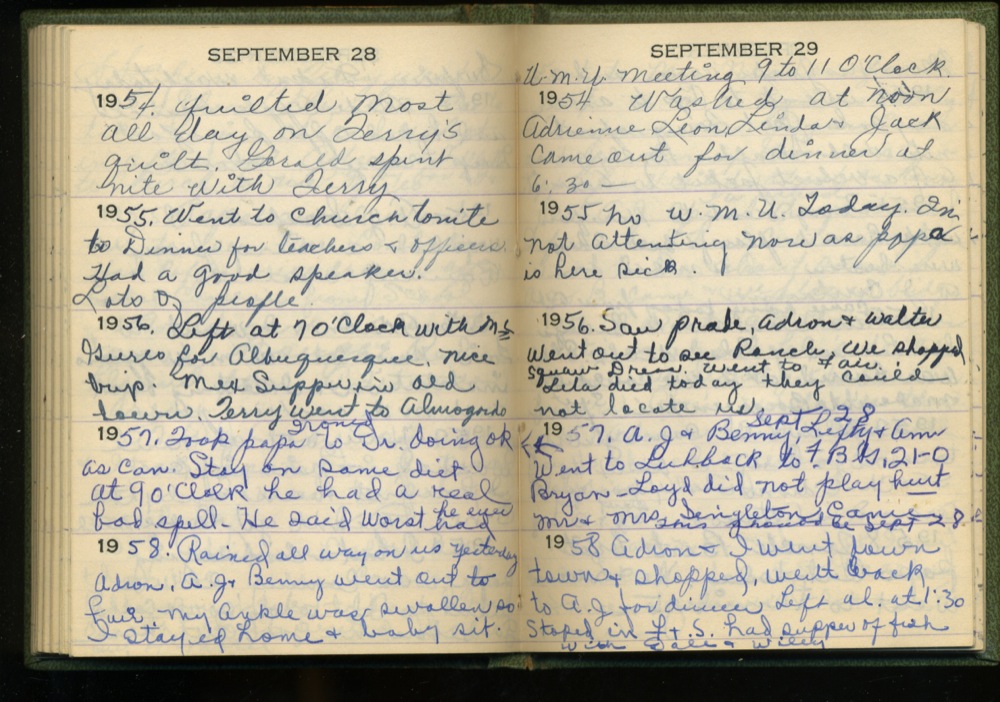 SEPTEMBER 28
1954. Quilted most
all day on Terry's
quilt. Gerald spint
nite with Terry
1955. Went to Church tonite
to Dinner for teachers & officers
Had a good speaker.
Lots of people.
1956. Left at 7 O'Clock with Mrs
for Albuquerque. nice
trip. Mex Supper in old
town. Terry went to Almogordo
1957. Took papa to Dr. doing ok
as can. Stay on same diet
at 9 O'Clock he had a real
bad spell - He said worst he ever had
1958. Rained all way on us yesterday
Adron, A.J & Benny went out to
. my ankle was swollen so
I stayed home & baby sit.
SEPTEMBER 29
W.M.U. Meeting 9 to 11 O'Clock.
1954 Washed at noon
Adrienne Leon Linda & Jack
Came out for dinner at
6:30 —
1955 no W.M.U. Today. Im
not attending now as papa
is here sick.
1956. Saw prade, Adron & Walter
went out to see Ranch, We shopped
squaw Dress. went to Fair.
Lila did today they could
not locate us
Sept 28
1957. A.J & Benny, Lefty & Ann
Went to Lubbock to F.B. 21-0
Bryan - Loyd did not play hurt
Mr & Mrs Singleton Came
this should be Sept 28.
1958 Adron & I went down
town & shopped, went back
to A.J for dinner Left al. at 1:30
Stoped in Ft. S. had supper of fish
with & Willy